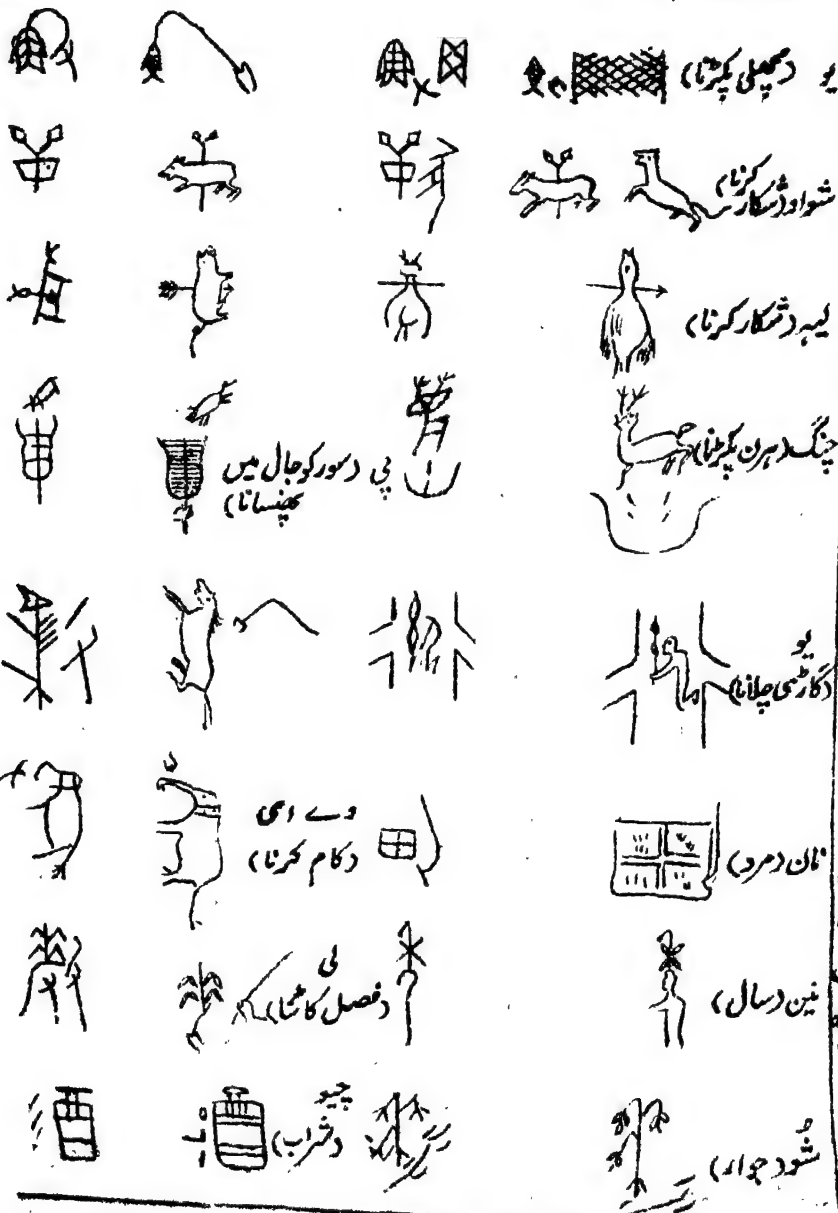 یو (مچھلی پکڑنا)
شواو (شکار کرنا)
لیہ (شکار کرنا)
چنگ (ہرن پکڑنا)
پی (سور کو جال میں
پھنسانا)
یو
(گاڑھی چلانا)
نان (مرد)
وے اھی
(کام کرنا)
نین (سال)
لی
(فصل کاٹنا)
شُو (جوار)
چیو
(شراب)